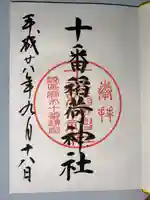 奉拝
十番稲荷神社
平成廿八年九月十八日